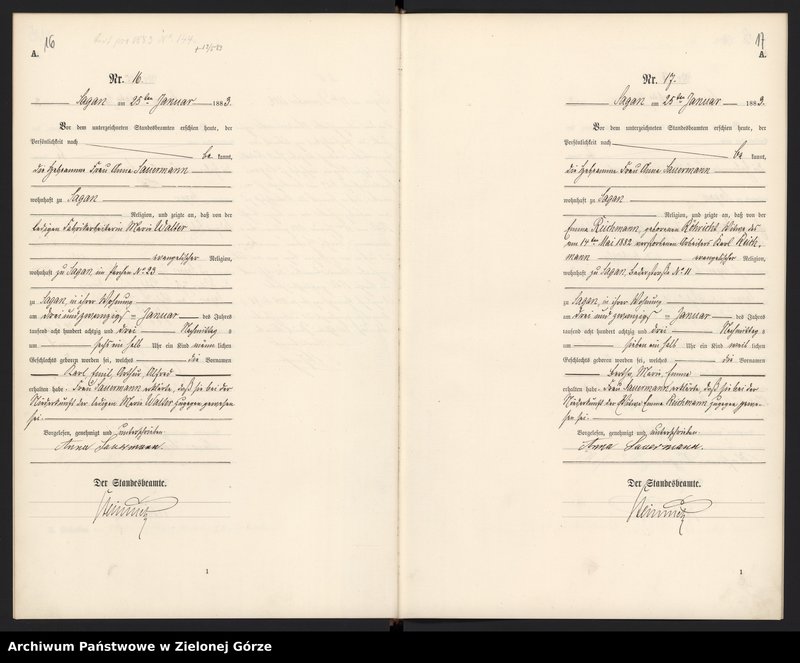 16
A.
Nr. 16.
Sagan am 25ten Januar 1883.
Vor dem unterzeichneten Standesbeamten erschien heute, der
Persönlichkeit nach
be kannt,
die Hebeamme Frau Anna Sauermann
wohnhaft zu Sagan
Religion, und zeigte an, daß von der
ledigen Fabrikarbeiterin Marie Walter
evangelischer Religion,
wohnhaft zu Sagan, im No 23
zu Sagan, in ihrer Wohnung
am drei und zwanzigs ten Januar des Jahres
tausend acht hundert achtzig und drei Nachmittag s
um sechs ein halb Uhr ein Kind männ lichen
Geschlechts geboren worden sei, welches die Vornamen
Karl Emil Arthur Alfred
erhalten habe. Frau Sauermann erklärte, daß sie bei der
Niederkunft der ledigen Marie Walter zugegen gewesen
sei.
Vorgelesen, genehmigt und unterschrieben
Anna Sauermann.
Der Standesbeamte.
1
17
A.
Nr. 17.
Sagan am 25ten Januar 1883.
Vor dem unterzeichneten Standesbeamten erschien heute, der
Persönlichkeit nach
be kannt,
die Hebeamme Frau Anna Sauermann
wohnhaft zu Sagan
Religion, und zeigte an, daß von der
Emma Reichmann, geborenen Röhricht, Witwe des
am 14ten Mai 1882 verstorbenen Arbeiters Karl Reich-
mann evangelischer Religion,
wohnhaft zu Sagan, No 11
zu Sagan, in ihrer Wohnung
am drei und zwanzigs ten Januar des Jahres
tausend acht hundert achtzig und drei Nachmittag s
um sieben ein halb Uhr ein Kind weib lichen
Geschlechts geboren worden sei, welches die Vornamen
Bertha, Marie, Emma
erhalten habe. Frau Sauermann erklärte, daß sie bei der
Niederkunft der Witwe Emma Reichmann zugegen gewe-
sen sei.
Vorgelesen, genehmigt und unterschrieben.
Anna Sauermann.
Der Standesbeamte.
1
Archiwum Państwowe w Zielonej Górze